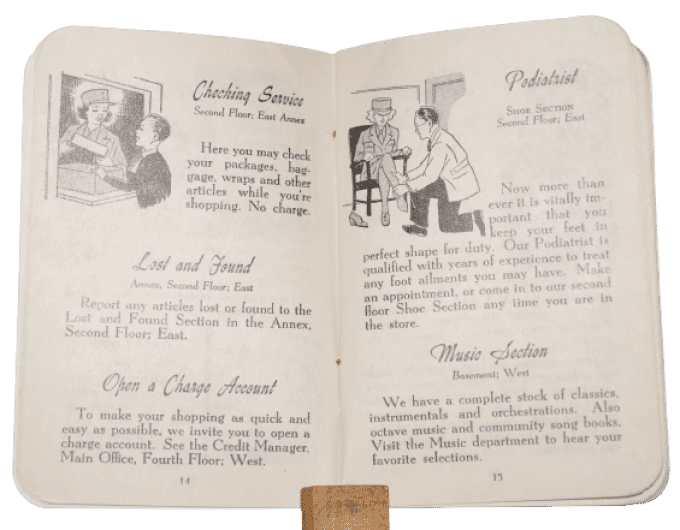 Checking Service
Second Floor; East Annex
Here you may check
your packages, bag-
gage, wraps and other
articles while you're
shopping. No charge.
Lost and Found
Annex, Second Floor; East
Report any articles lost or found to the
Lost and Found Section in the Annex,
Second Floor; East.
Open a Charge Account
To make your shopping as quick and
easy as possible, we invite you to open a
charge account. See the Credit Manager,
Main Office, Fourth Floor; West.
14
Podiatrist
Shoe Section
Second Floor; East
Now more than
ever it is vitally im-
portant that you
keep your feet in
perfect shape for duty. Our Podiatrist is
qualified with years of experience to treat
any foot ailments you may have. Make
an appointment, or come in to our second
floor Shoe Section any time you are in
the store.
Music Section
Basement; West
We have a complete stock of classics,
instrumentals and orchestrations. Also
octave music and community song books,
Visit the Music department to hear your
favorite selections.
15